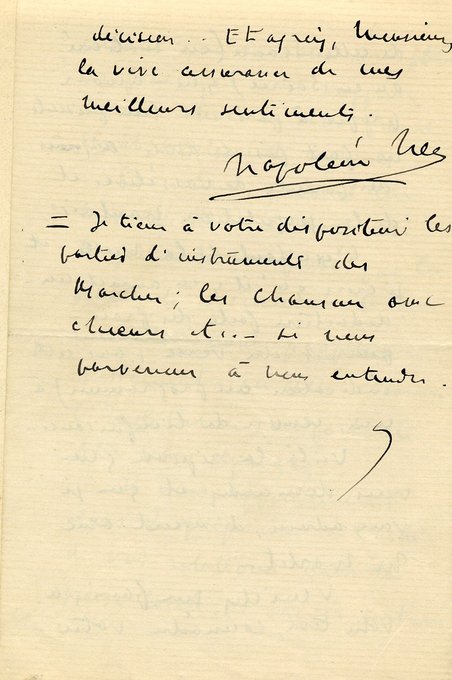 décision. . Et agréez, Monsieur,
la vive assurance de mes
meilleurs sentiments.
Napoléon
= Je tiens à votre disposition les
parties d'instruments des
Marches ; les Chansons avec
chœurs etc.. — si nous
parvenons à nous entendre.